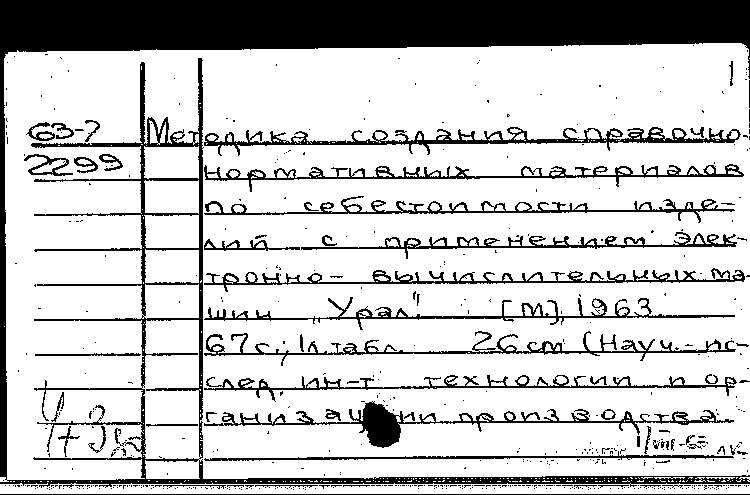 1
63-7 Методика создания справочно-
2299 нормативных материалов
по себестоимости изде-
лий с применением элек-
тронно-вычислительных ма-
шин „Урал". [М.], 1963.
67 с.; 1 л. табл. 26 см (Науч.-ис-
след. ин-т технологии и ор-
ганизации производства
1/VIII-63